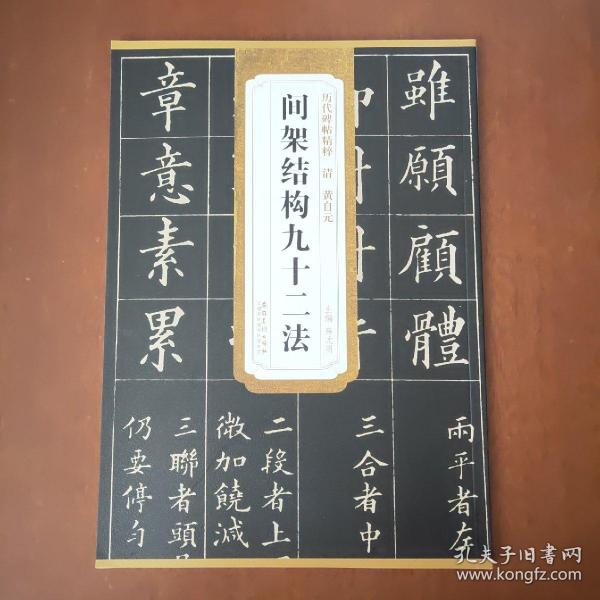 历代碑帖精粹 清 黄自元
间架结构九十二法
主编
安徽美术出版社
雖願顧體
章意素累
兩平者左
三合者中
二段者上
微加饒減
三聯者頭
仍要停勻
孔夫子旧书网
www.kongfz.com